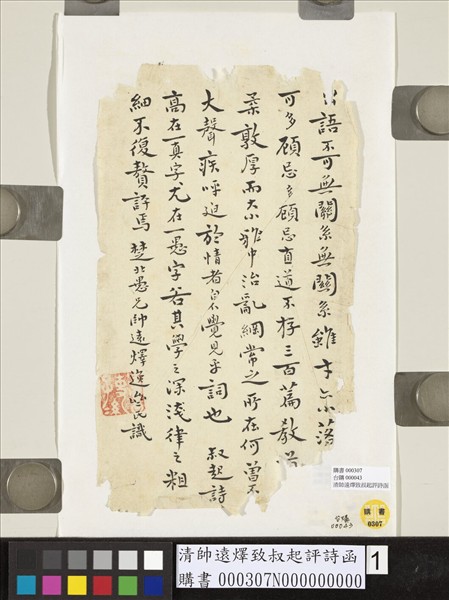 語不可無關系無關系雖才亦小落
可多顧忌多顧忌直道不存三百篇教
柔敦厚而大小雅中治亂綱常之所在何嘗不
大聲疾呼迫於情者自不覺見乎詞也 叔起詩
高在一真字尤在一愚字若其學之深淺律之粗
細不復贅評焉 楚北愚兄帥遠燡 氏識
購書 000307
台購 000043
清帥遠燡致叔起評詩函
購書
0307
台購
00043
清帥遠燡致叔起評詩函
購書 000307N000000000
1